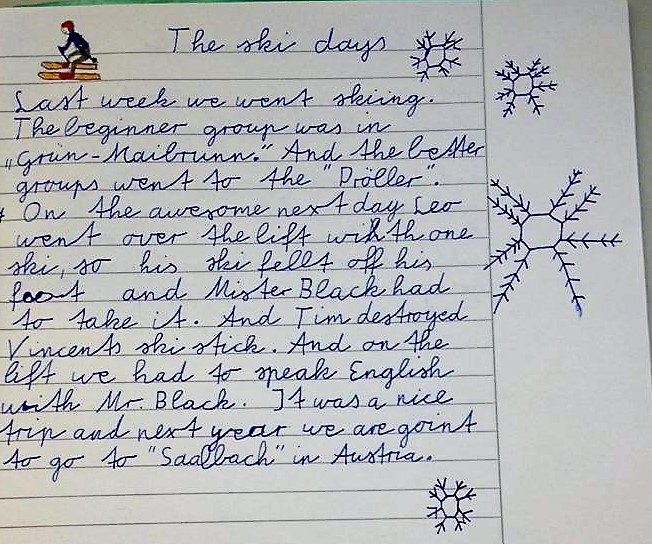 The ski days
Last week we went skiing.
The beginner group was in
„Grün-Maibrunn." And the better
groups went to the "Pröller".
On the awesome next day Leo
went over the lift with one
ski, so his ski fellt off his
foot and Mister Black had
to take it. And Tim destroyed
Vincents ski stick. And on the
lift we had to speak English
with Mr. Black. It was a nice
trip and next year we are goint
to go to "Saalbach" in Austria.